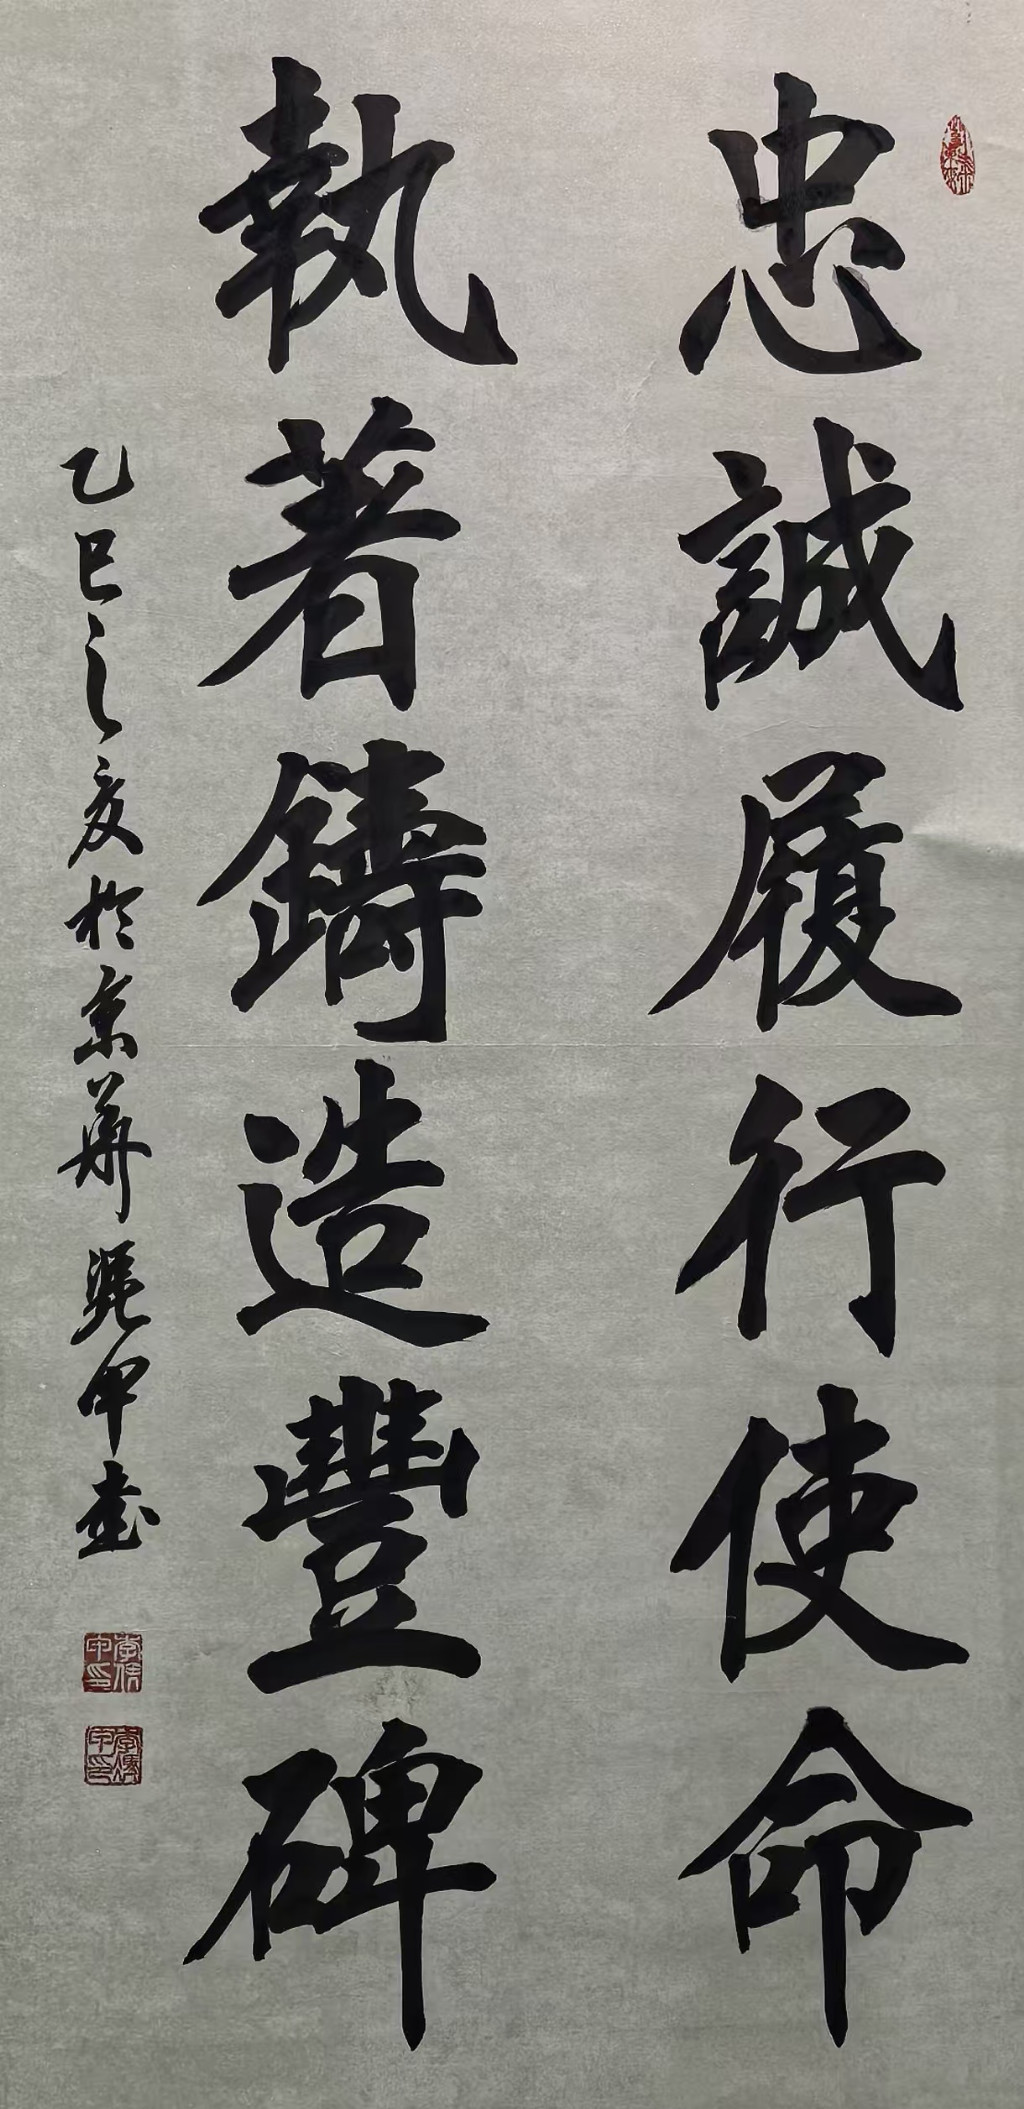 忠誠履行使命
執著鑄造豐碑
乙巳之夏於京華
甲書